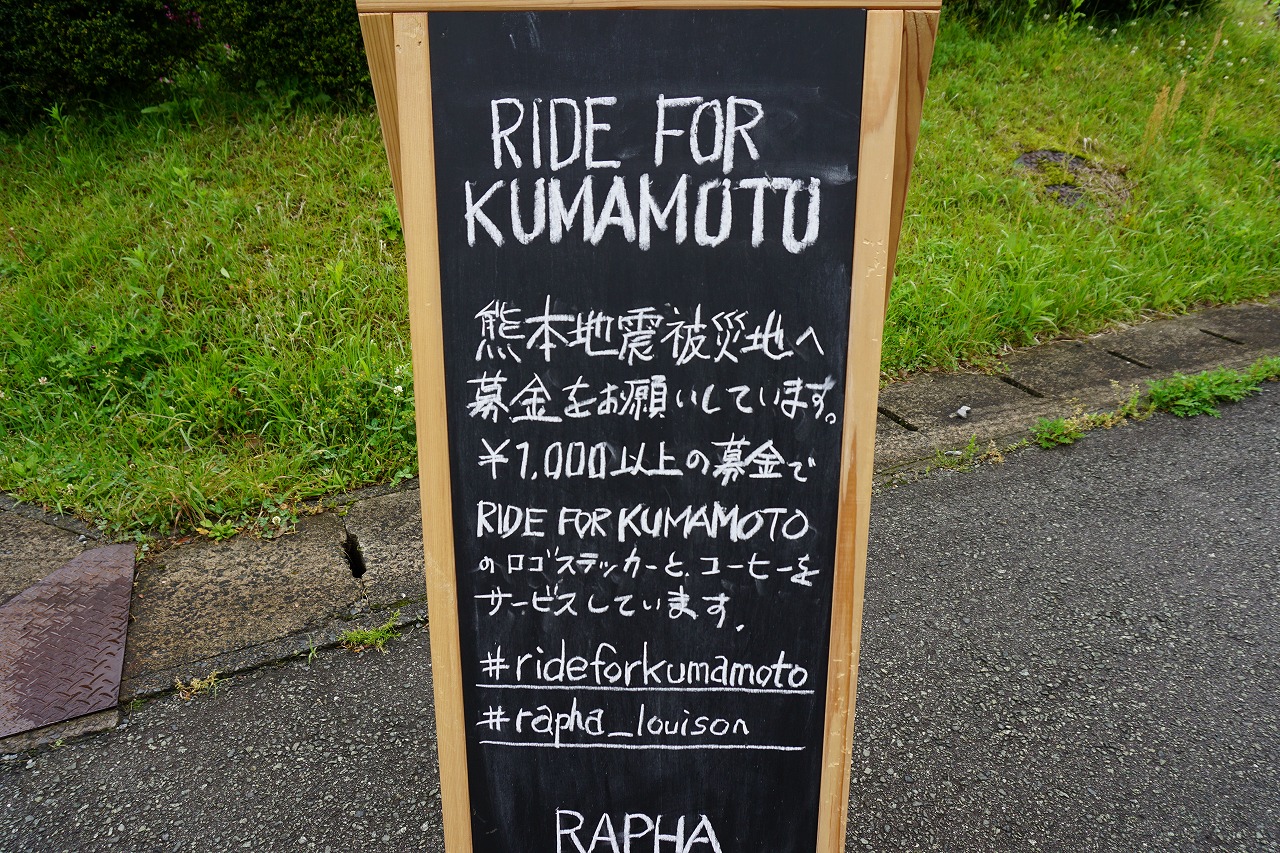 RIDE FOR
KUMAMOTO
熊本地震被災地へ
募金をお願いしています。
¥1,000以上の募金で
RIDE FOR KUMAMOTO
のロゴステッカーと、コーヒーを
サービスしています。
#rideforkumamoto
#rapha_louison
RAPHA